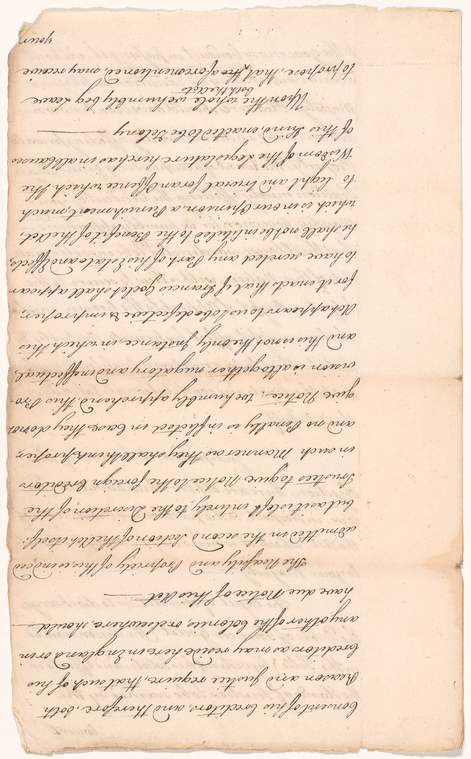 Consent of his Creditors, and Therefore, both
Reason and Justice require, that such of his
Creditors as may reside here, in England or in
any other of the Colonies, or elsewhere, should
have due Notice of this Act.
The Necessity and Propriety of this, is indeed
admitted in the second Section of the Act itself;
but as it is left intirely to the Discretion of the
Trustees to give Notice to the foreign Creditors
in such Manner as they shall think proper,
and no Penalty is inflicted in Case they do not
give Notice; we humbly apprehend this Pro-
vision is altogether nugatory and ineffectual,
and this is not the only Instance, in which this
Act appears to us to be defective & improper,
for it enacts that if Francis Goelet shall appear
to have secreted any Part of his Estate and Effects,
he shall not be intitled to the Benefit of the Act,
which is in our Opinion a Punishment, much
to light and trivial for an Offence which the
Wisdom of the Legislature here, has in all Clauses
of this Kind, enacted to be Felony
Upon the whole we humbly beg Leave
to propose, that both the Acts aforementioned, may receive
your